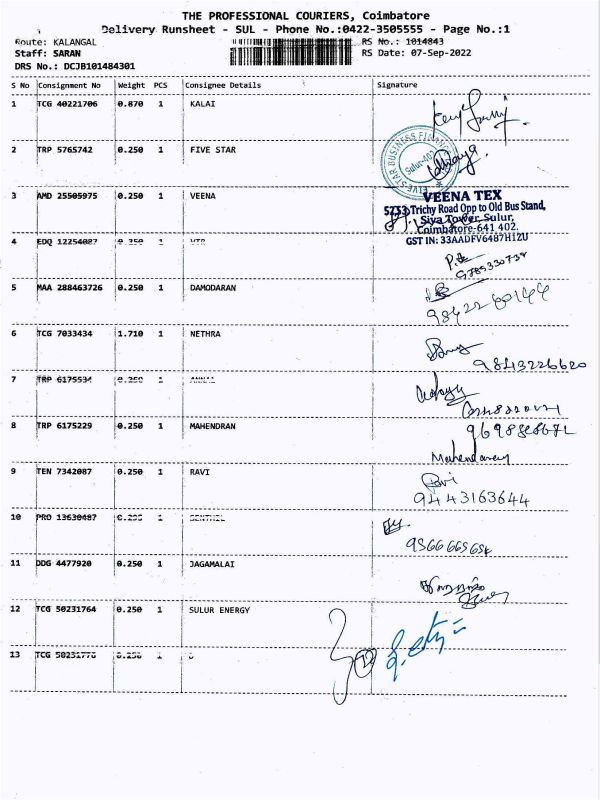 THE PROFESSIONAL COURIERS, Coimbatore
Delivery Runsheet - SUL - Phone No.:0422-3505555 - Page No.:1
Route: KALANGAL
RS No.: 1014843
Staff: SARAN
RS Date: 07-Sep-2022
DRS No.: DCJB101484301
S No Consignment No Weight PCS Consignee Details Signature
1 TCG 40221706 0.870 1 KALAI
2 TRP 5765742 0.250 1 FIVE STAR
FIVE STAR BUSINESS FINANCE
3 AMD 25505975 0.250 1 VEENA
VEENA TEX
Trichy Road Opp to Old Bus Stand,
Siva Tower, Sulur,
Coimbatore-641 402.
GST IN: 33AADFV6487H1ZU
4 EDQ 12254087 0.250 1
5 MAA 288463726 0.250 1 DAMODARAN
6 TCG 7033434 1.710 1 NETHRA
9843226620
7 TRP 6175534 0.250 1
8 TRP 6175229 0.250 1 MAHENDRAN
Mahendran
9 TEN 7342087 0.250 1 RAVI
Ravi
9443163644
10 PRO 13630487 1 SENTHIL
11 DDG 4477920 0.250 1 JAGAMALAI
12 TCG 50231764 0.250 1 SULUR ENERGY
13 TCG 50231776 0.250 1